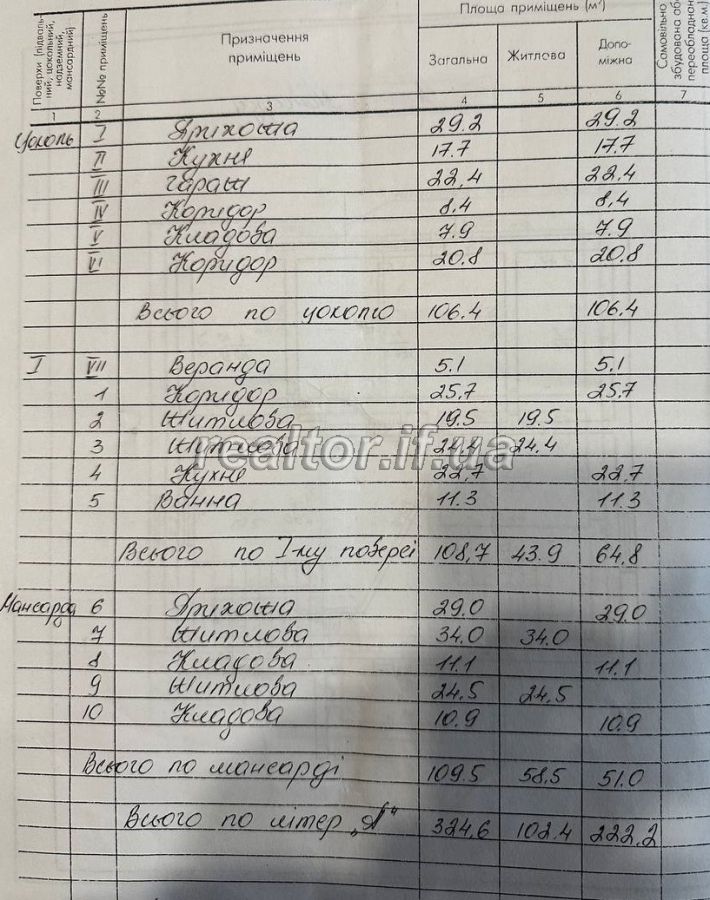 Площа приміщень (м²)
Поверхи (підваль-
ний, цокольний,
надземний,
мансардний)
№№ приміщень
Призначення
приміщень
Загальна
Житлова
Допо-
міжна
Самовільно
збудована або
переобладнан
площа (кв.м.)
1 2 3 4 5 6 7
Цоколь I 29.2 29.2
II Кухня 17.7 17.7
III Гараж 22,4 22.4
IV Коридор 8,4 8,4
V Кладова 7.9 7.9
VI Коридор 20.8 20.8
Всього по цоколю 106.4 106.4
I VII Веранда 5.1 5.1
1 Коридор 25.7 25.7
2 Житлова 19.5 19.5
3 Житлова 24.4 24.4
4 Кухня 22,7 22,7
5 Ванна 11.3 11.3
Всього по I-му поверсі 108,7 43.9 64,8
Мансарда 6 29.0 29.0
7 Житлова 34.0 34.0
8 Кладова 11.1 11.1
9 Житлова 24.5 24,5
10 Кладова 10.9 10.9
Всього по мансарді 109.5 58,5 51.0
Всього по літер „А" 324,6 102.4 222,2
realtor.if.ua